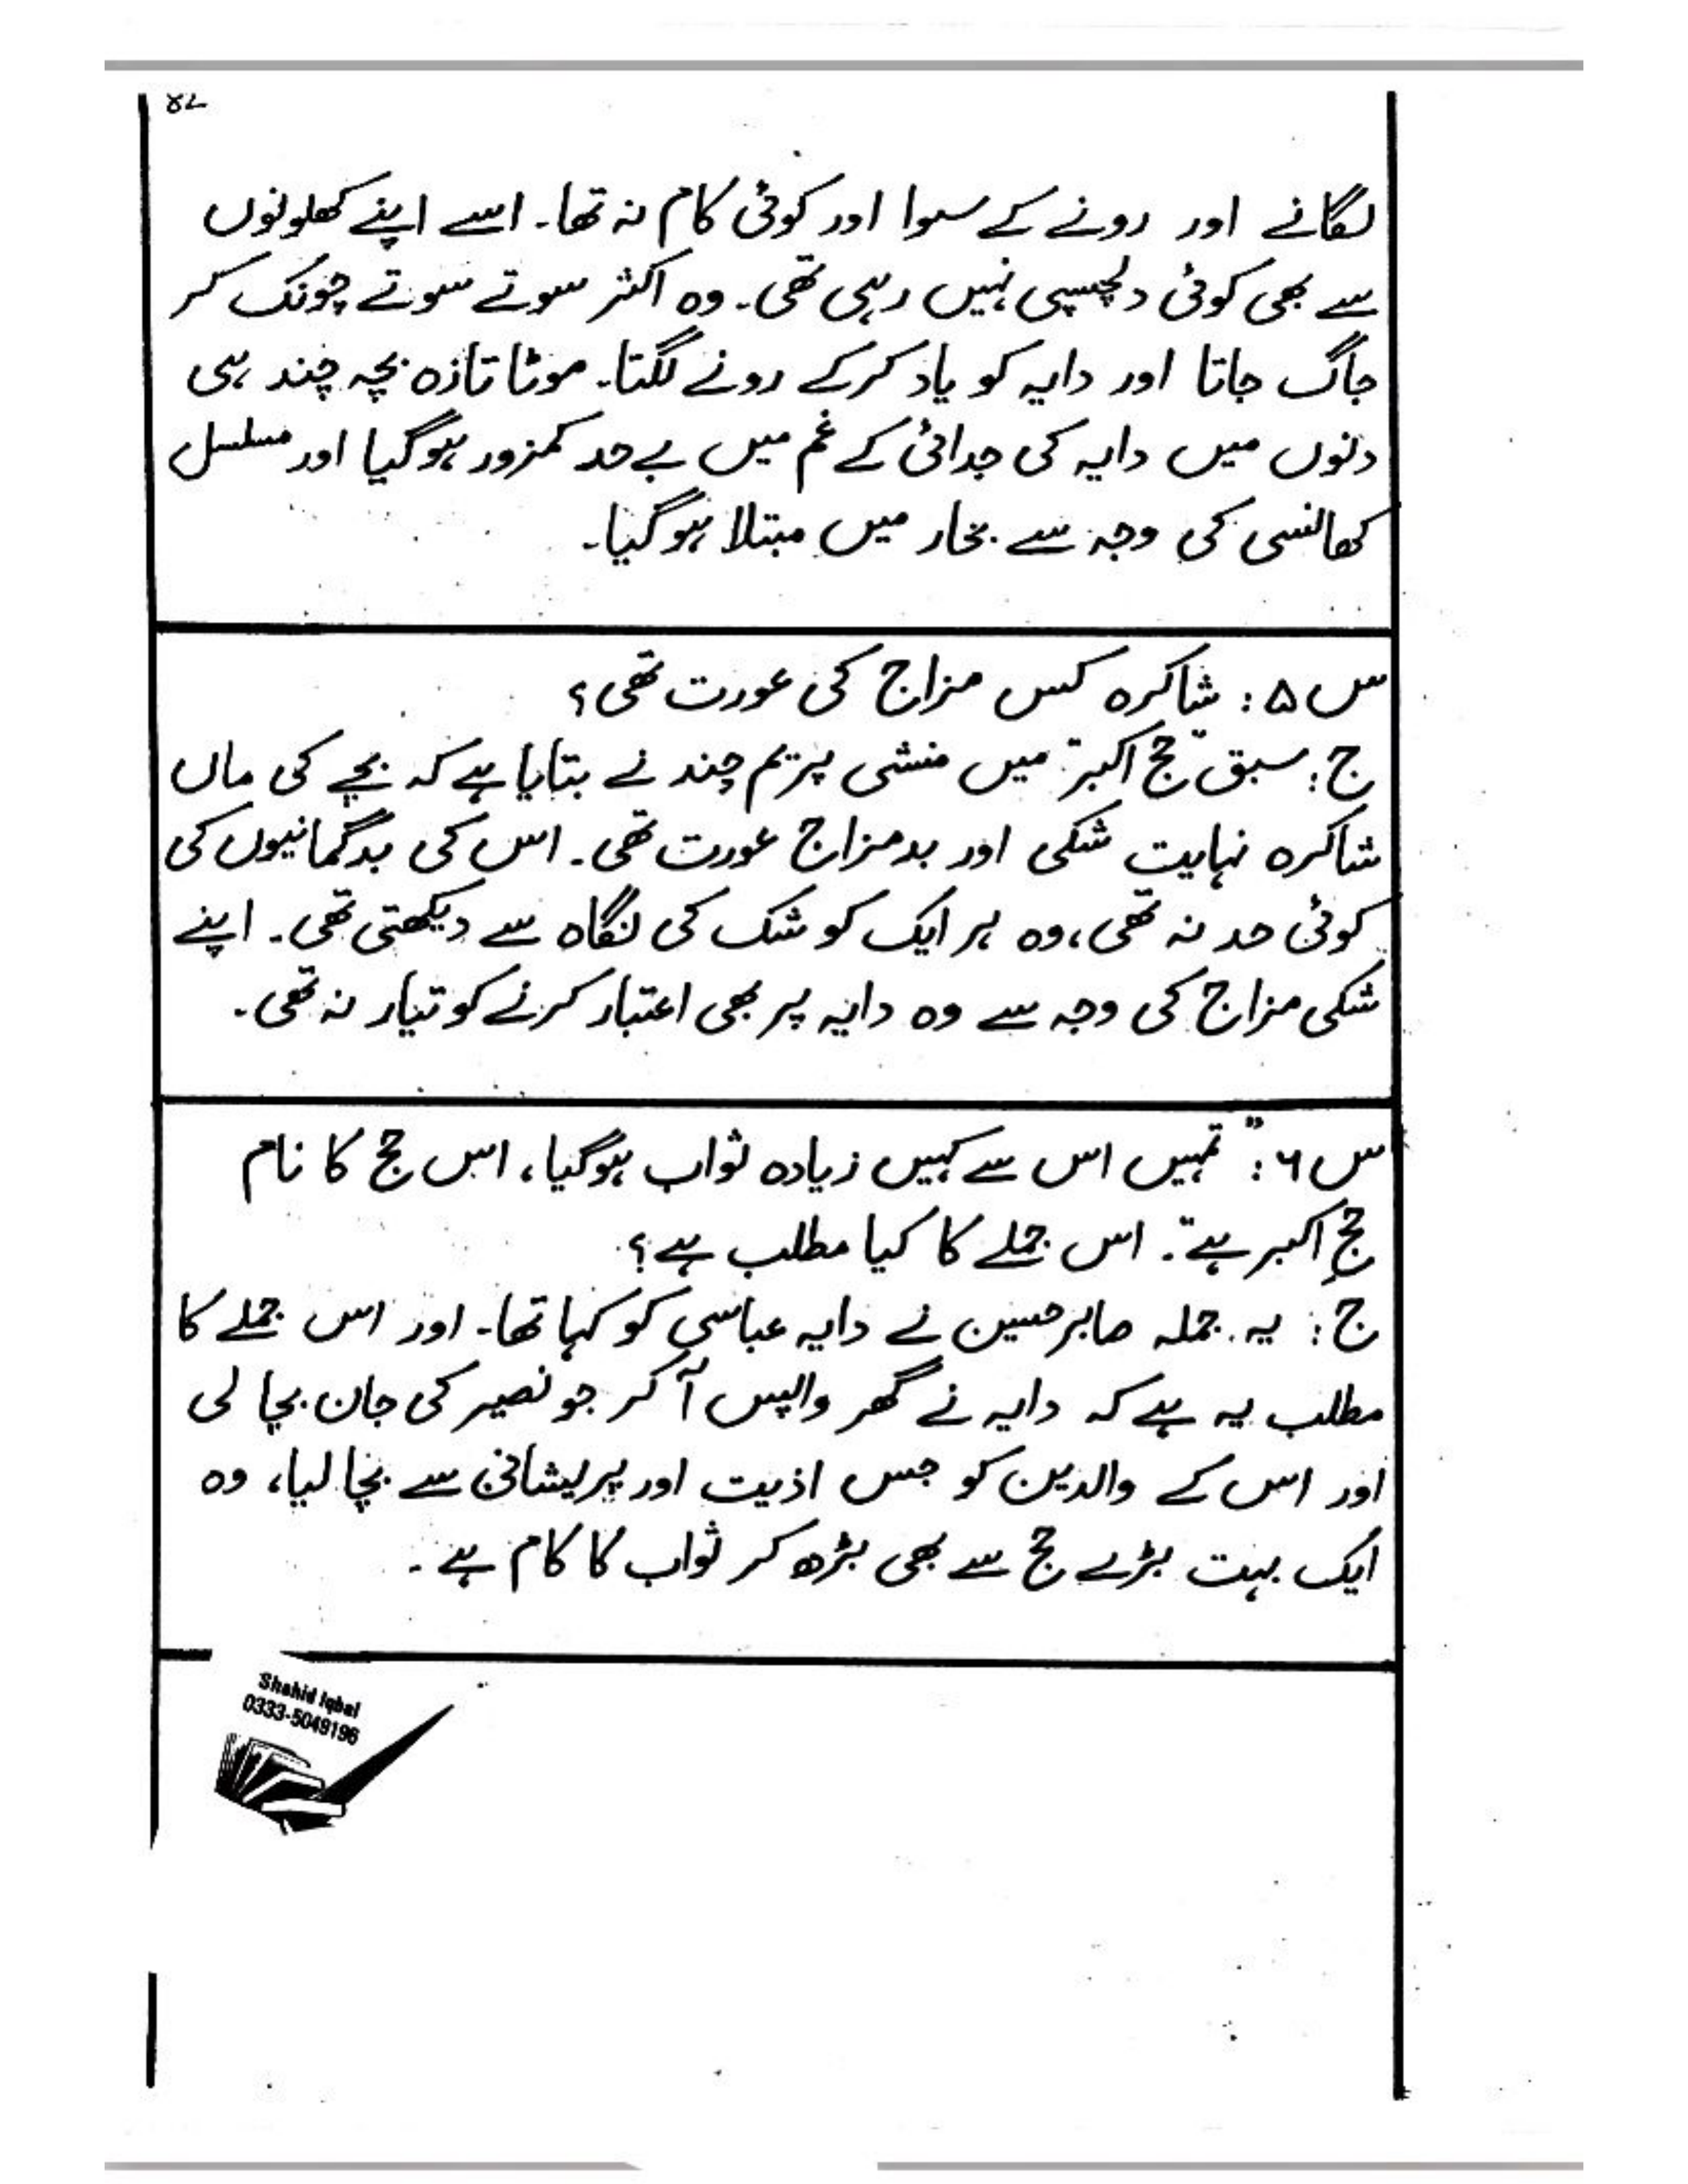 ۴۷
لگانے اور رونے کے سوا اور کوئی کام نہ تھا۔ اسے اپنے کھلونوں
سے بھی کوئی دلچسپی نہیں رہی تھی۔ وہ اکثر سوتے سوتے چونک کر
جاگ جاتا اور دایہ کو یاد کرکے رونے لگتا۔ موٹا تازہ بچہ چند ہی
دنوں میں دایہ کی جدائی کے غم میں بے حد کمزور ہوگیا اور مسلسل
کھانسی کی وجہ سے بخار میں مبتلا ہوگیا۔
س ۵: شاکرہ کس مزاج کی عورت تھی؟
ج: سبق "حج اکبر" میں منشی پریم چند نے بتایا ہے کہ بچے کی ماں
شاکرہ نہایت شکی اور بدمزاج عورت تھی۔ اس کی بدگمانیوں کی
کوئی حد نہ تھی، وہ ہر ایک کو شک کی نگاہ سے دیکھتی تھی۔ اپنے
شکی مزاج کی وجہ سے وہ دایہ پر بھی اعتبار کرنے کو تیار نہ تھی۔
س ۶: "تمہیں اس سے کہیں زیادہ ثواب ہوگیا، اس حج کا نام
حجِ اکبر ہے"۔ اس جملے کا کیا مطلب ہے؟
ج: یہ جملہ صابر حسین نے دایہ عباسی کو کہا تھا۔ اور اس جملے کا
مطلب یہ ہے کہ دایہ نے گھر واپس آ کر جو نصیر کی جان بچا لی
اور اس کے والدین کو جس اذیت اور پریشانی سے بچا لیا، وہ
ایک بہت بڑے حج سے بھی بڑھ کر ثواب کا کام ہے۔
Shahid Iqbal
0333-5049196